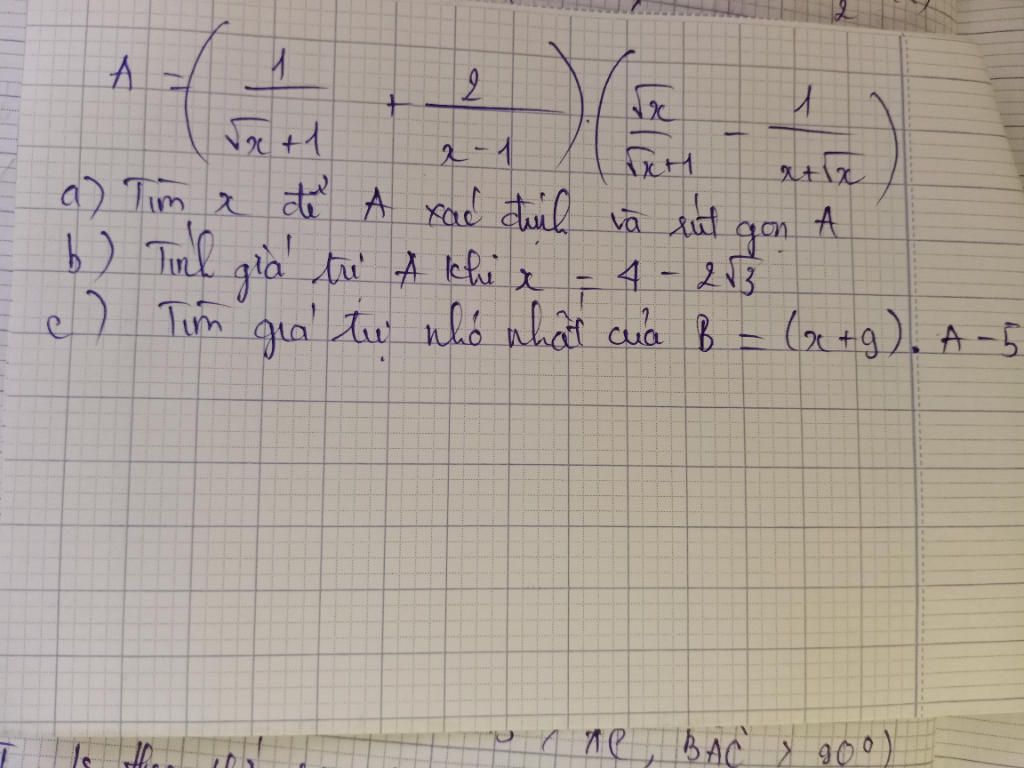 2
A = (1/(√x + 1) + 2/(x - 1)) . (√x/(√x + 1) - 1/(x + √x))
a) Tìm x để A xác định và rút gọn A
b) Tính giá trị A khi x = 4 - 2√3
c) Tìm giá trị nhỏ nhất của B = (x + 9). A - 5
BAC > 90°)